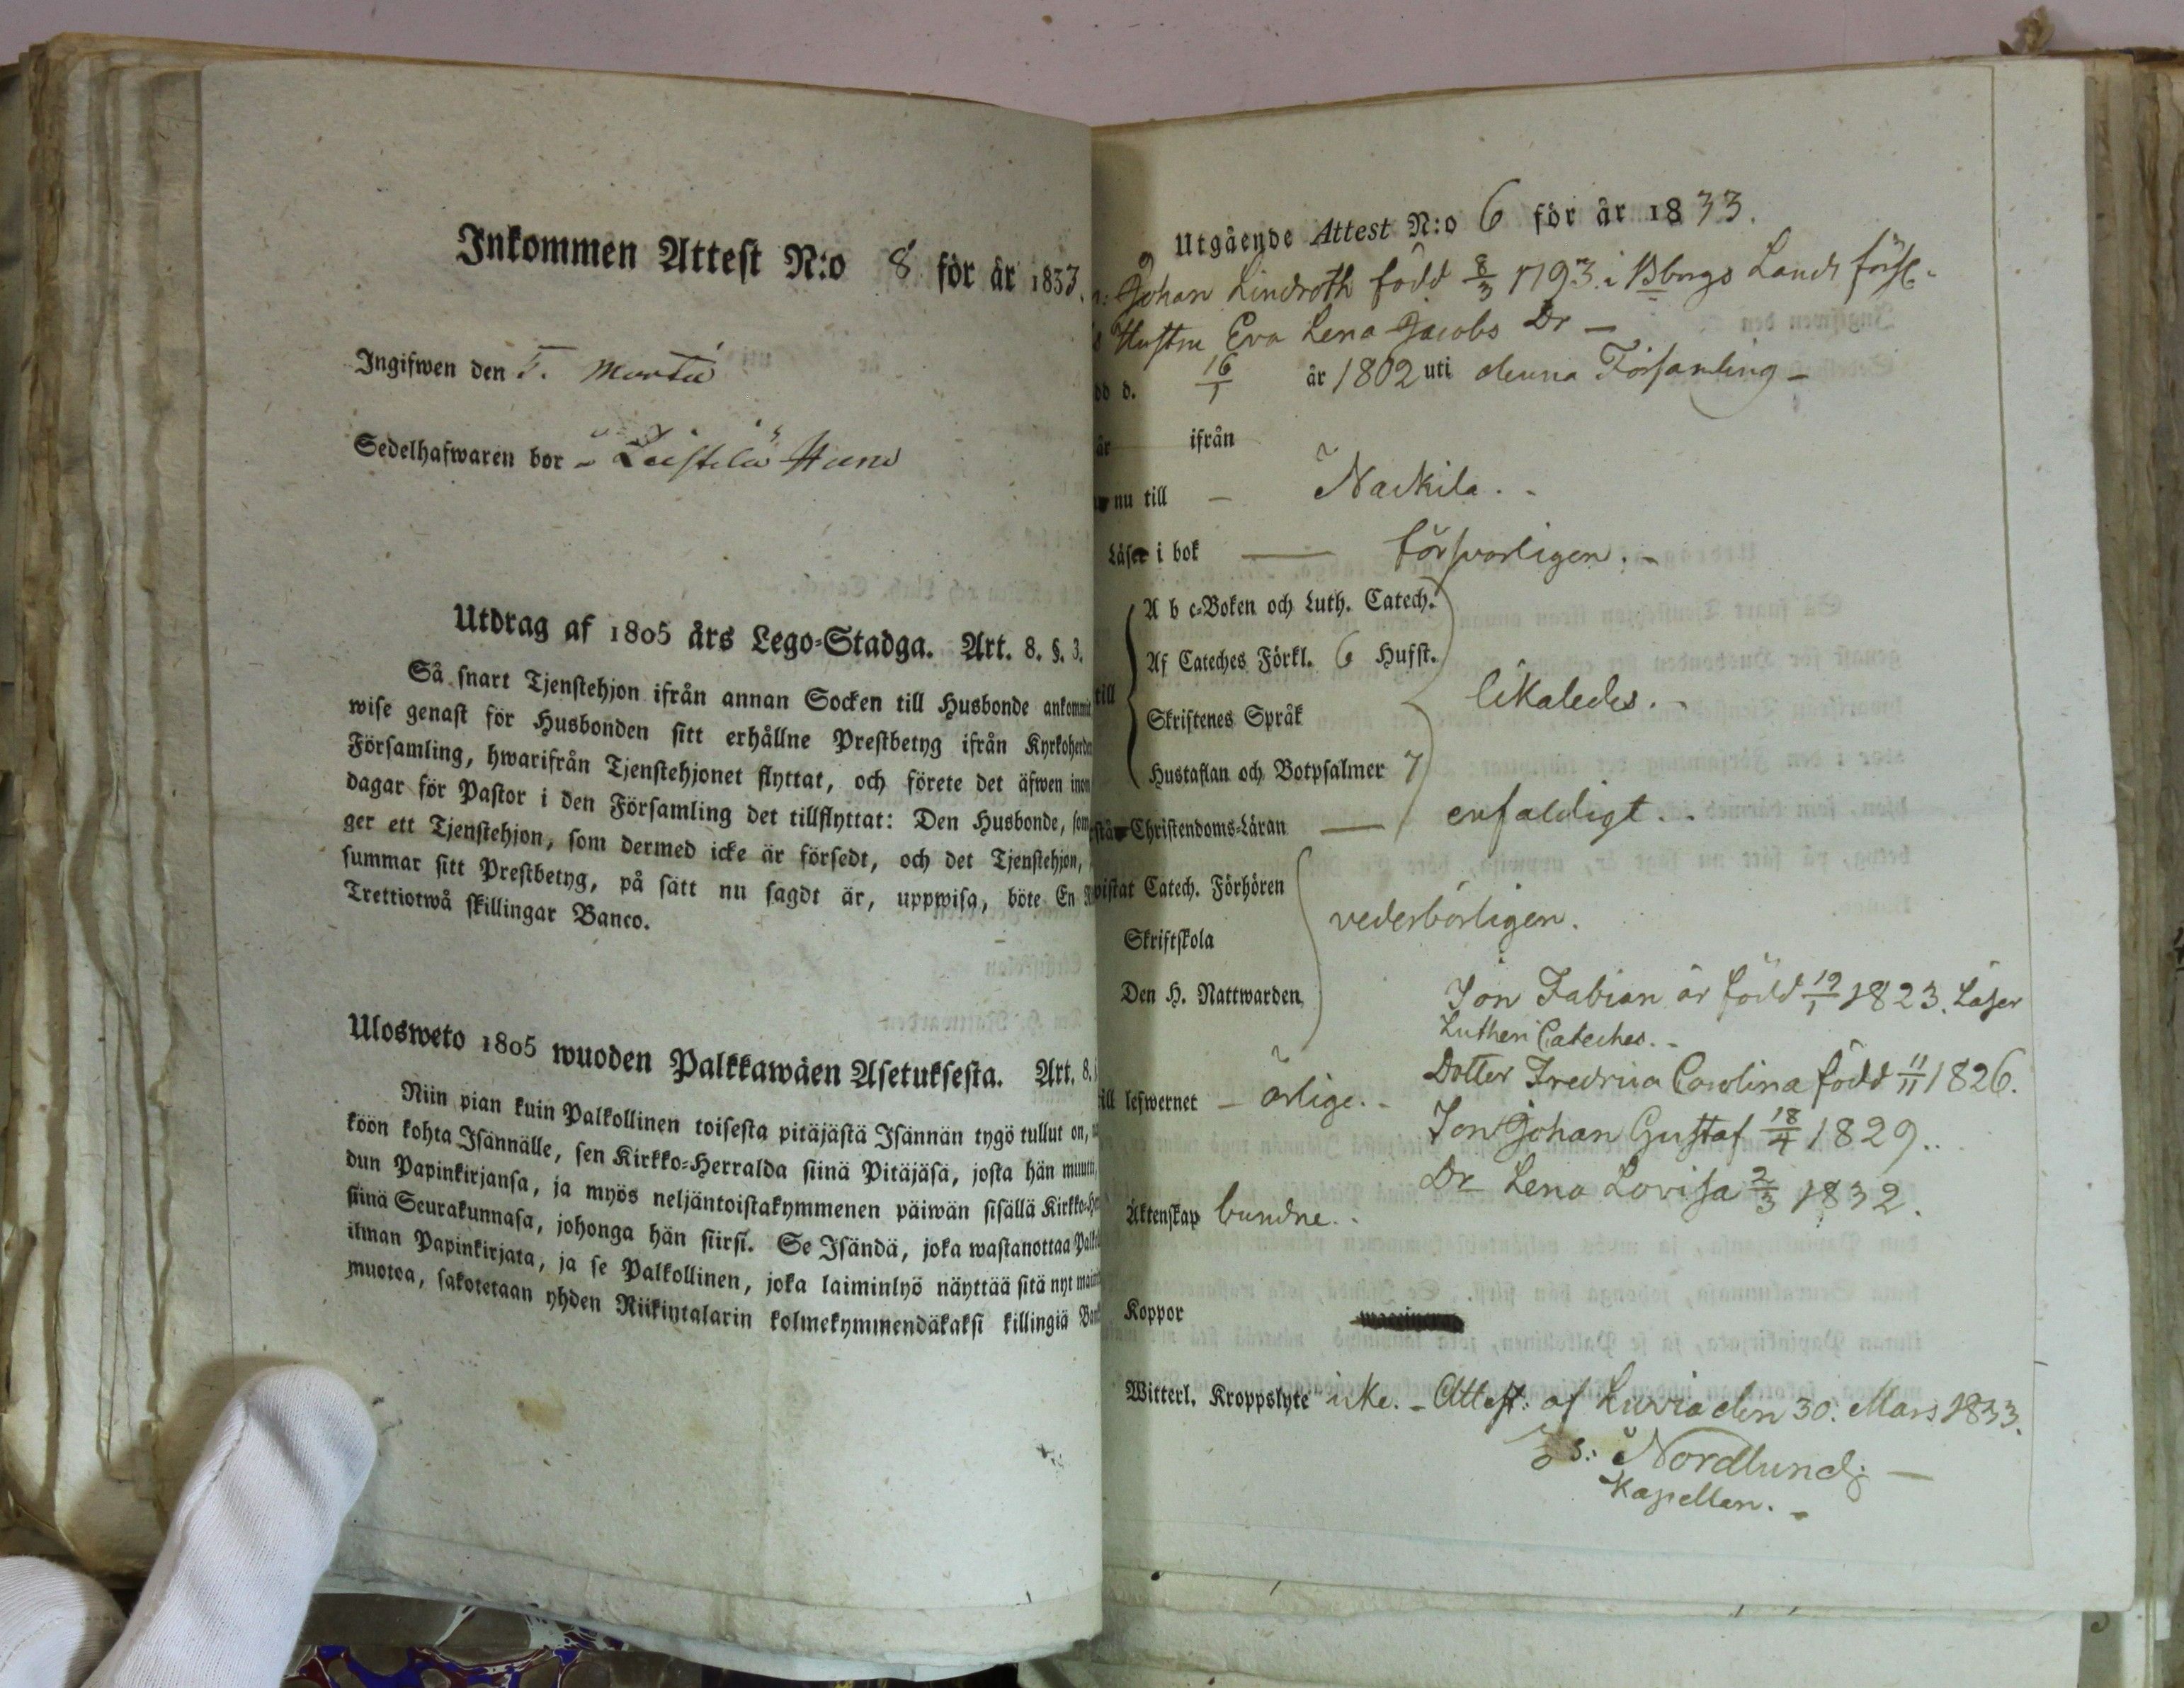 Inkommen Attest N:o 8 för år 1833.
Ingifwen den
Sedelhafwaren bor
Utdrag af 1805 års Lego-Stadga. Art. 8. §. 3.
Så snart Tjenstehjon ifrån annan Socken till Husbonde ankommit
wise genast för Husbonden sitt erhållne Prestbetyg ifrån Kyrkoherden
Församling, hwarifrån Tjenstehjonet flyttat, och förete det äfwen inom
dagar för Pastor i den Församling det tillflyttat: Den Husbonde, som
ger ett Tjenstehjon, som dermed icke är försedt, och det Tjenstehjon,
summar sitt Prestbetyg, på sätt nu sagdt är, uppwisa, böte En
Trettiotwå skillingar Banco.
Ulosweto 1805 wuoden Palkkawäen Asetuksesta. Art. 8.
Niin pian kuin Palkollinen toisesta pitäjästä Isännän tygö tullut on,
köön kohta Isännälle, sen Kirkko-Herralda siinä Pitäjäsä, josta hän muutti,
dun Papinkirjansa, ja myös neljäntoistakymmenen päiwän sisällä Kirkko-Her
siinä Seurakunnasa, johonga hän siirsi. Se Isändä, joka wastanottaa Palko
ilman Papinkirjata, ja se Palkollinen, joka laiminlyö näyttää sitä nyt
muotoa, sakotetaan yhden Riikintalarin kolmekymmendäkaksi killingiä
Utgående Attest N:o 6 för år 1833.
Johan Lindroth född 8/3 1793 i Bborgs Lands förs.
Hustru Eva Lena Jacobs Dr —
dd d. 16/1 år 1802 uti denna Församling —
år ifrån
nu till — Nackila. -
Läser i bok — försvarligen. -
A b c-Boken och Luth. Catech.
Af Cateches Förkl. 6 Hufst.
till likaledes. -
Skriftenes Språk
Hustaflan och Botpsalmer 7
Christendoms-Läran — enfaldigt. -
wistat Catech. Förhören
vederbörligen.
Skriftskola
Den H. Nattwarden
Son Fabian är född 19/1 1823. Läser
Lutheri Cateches. -
Dotter Fredrica Carolina född 11/11 1826.
till lefwernet — ärlige. -
Son Johan Gustaf 18/4 1829..
Dr Lena Lovisa 2/3 1832.
Äktenskap bundne. -
Koppor
Witterl. Kroppslyte icke. - Attest: af Luvia den 30. Mars 1833.
Nordlund
Kapellan. -